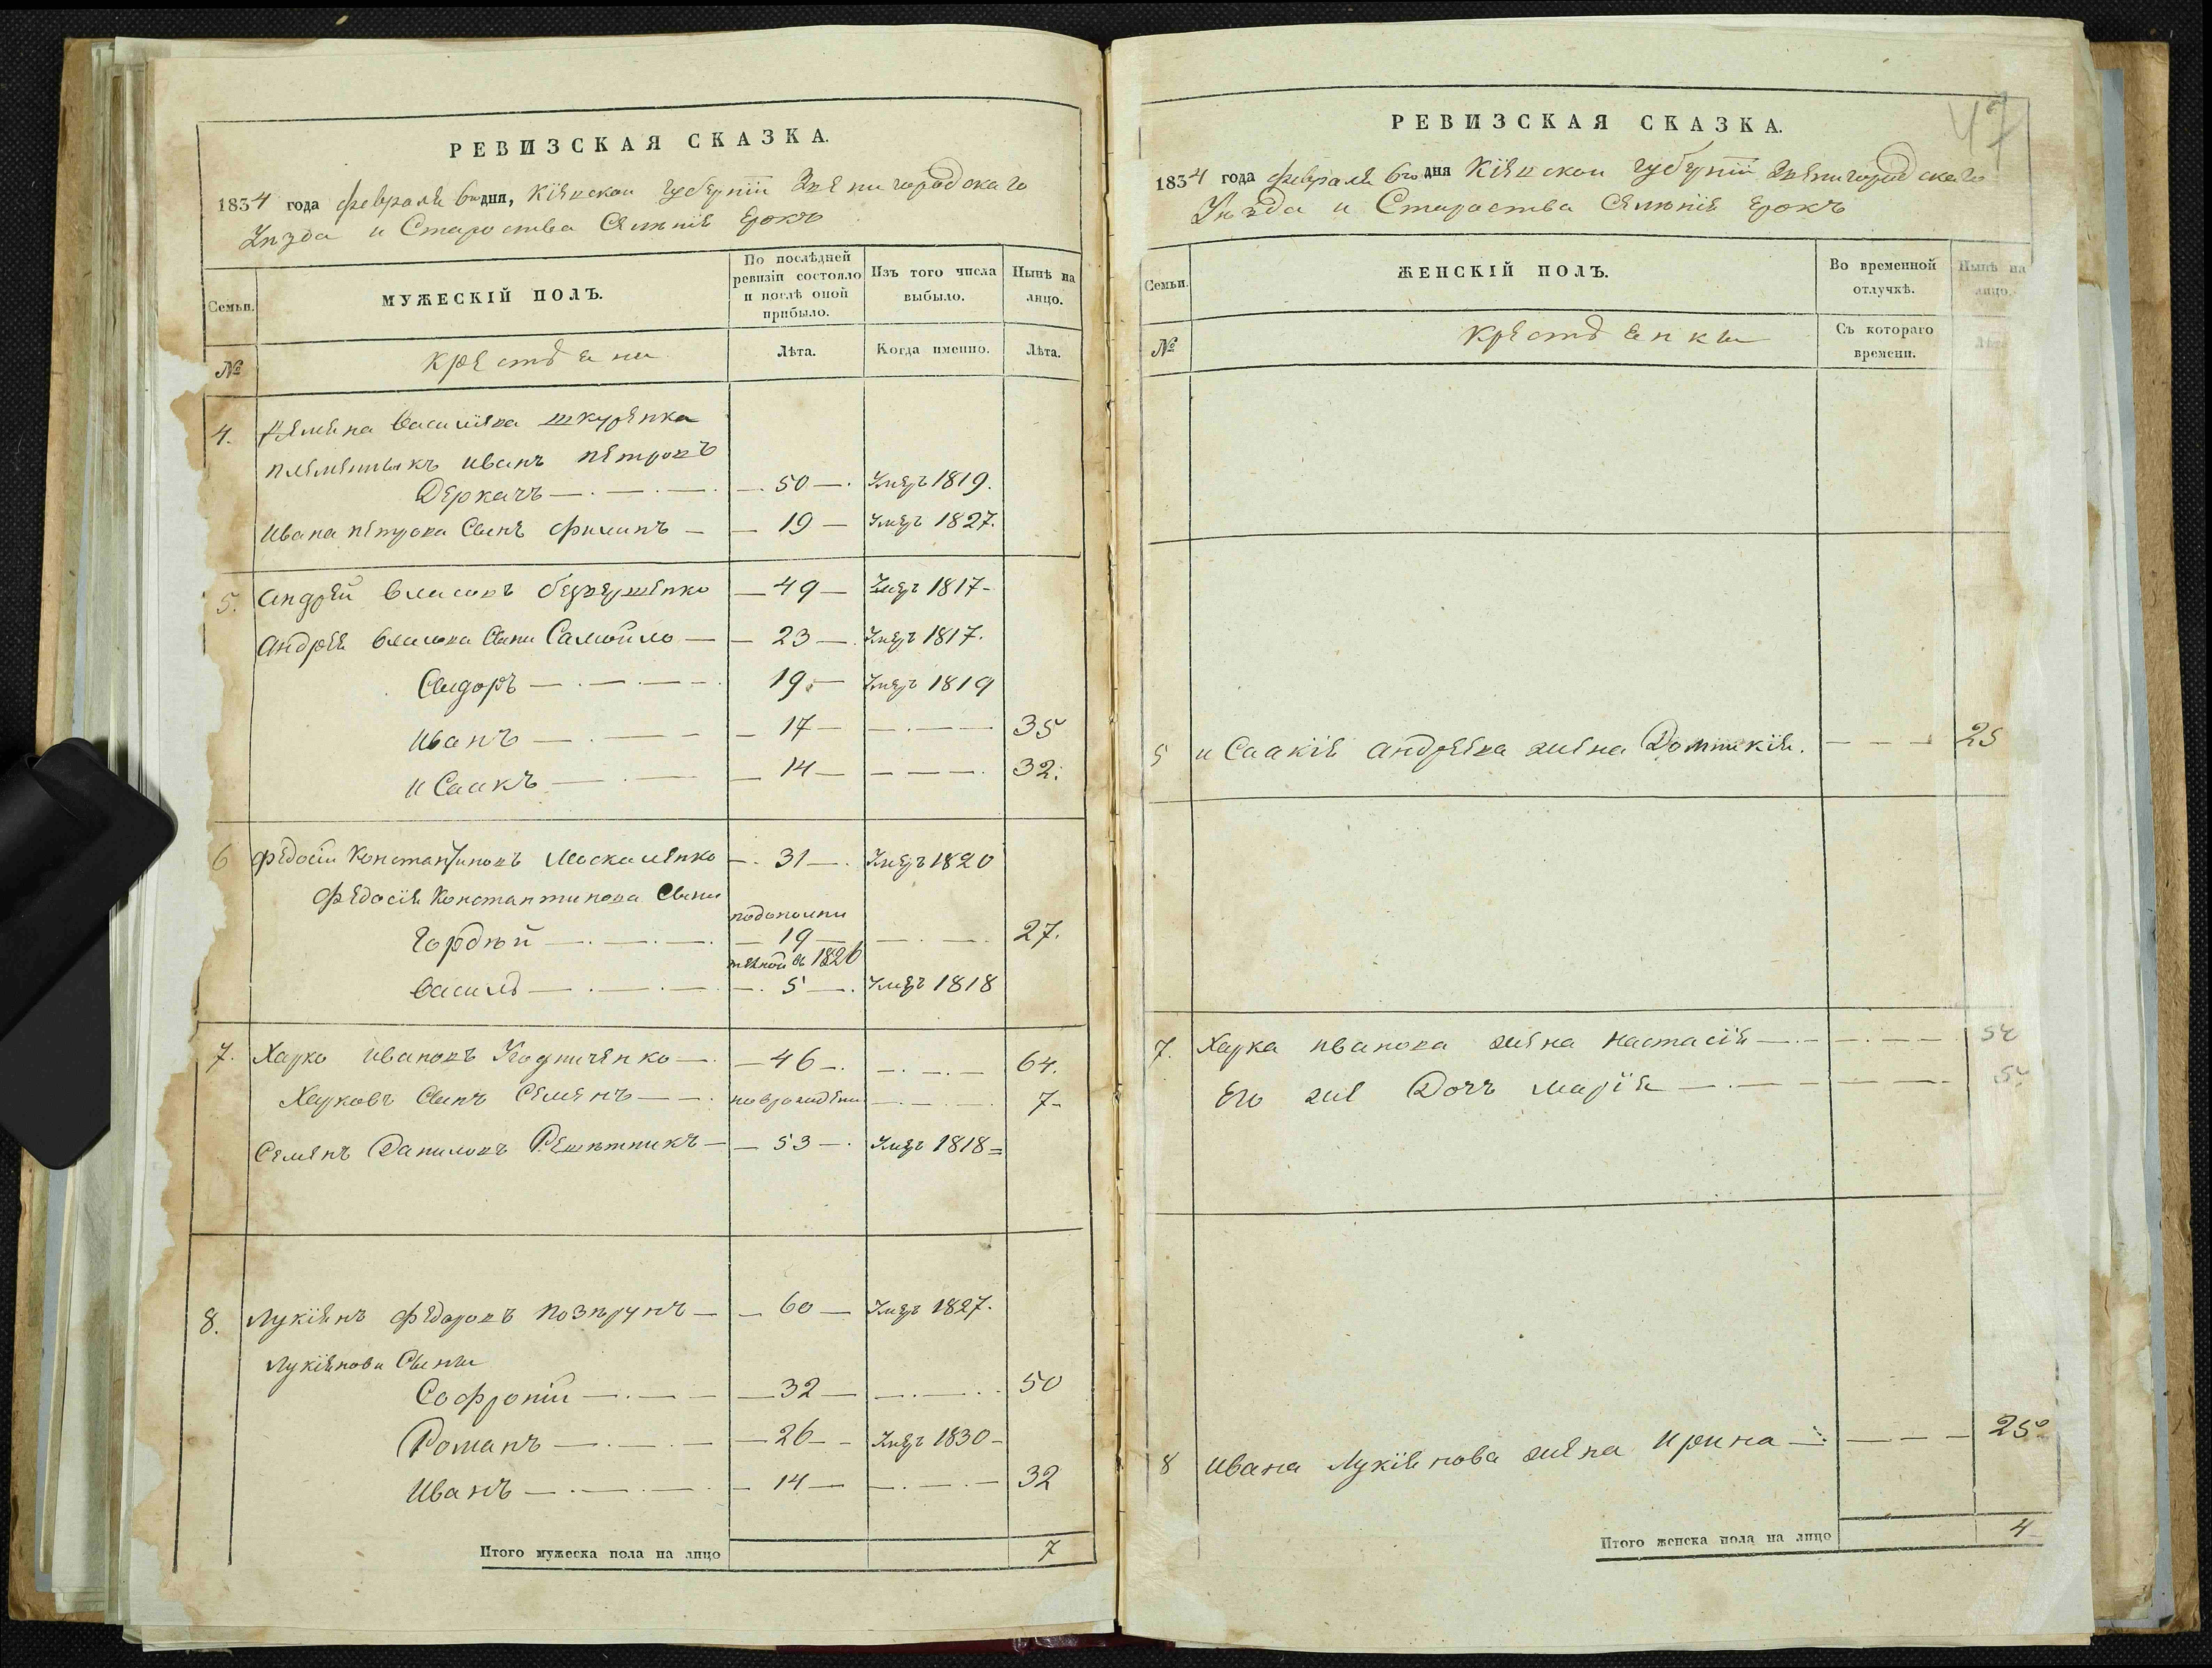 РЕВИЗСКАЯ СКАЗКА.
1834 года февраля 6го дня, Кіевской Губерніи Звенигородскаго
Уѣзда и Староства
Семьи.
МУЖЕСКІЙ ПОЛЪ.
По послѣдней ревизіи состояло и послѣ оной прибыло.
Изъ того числа выбыло.
Нынѣ на лицо.
№
Крестьяне
Лѣта.
Когда именно.
Лѣта.
4. Василіева Шкуренка
племенникъ Иванъ Петровъ
Деркачъ — 50 — Умеръ 1819.
Ивана Петрова Сынъ Филипъ — 19 — Умеръ 1827.
5. Андрей Власовъ — 49 — Умеръ 1817 -
Андрея Власова Сыни Самойло — 23 — Умеръ 1817.
Сидоръ — 19 — Умеръ 1819
Иванъ — 17 — 35
Исаакъ — 14 — 32.
6 Федосій Константиновъ Москаленко — 31 — Умеръ 1820
Федосія Константинова Сыни
подополни
Гордѣй — 19 — 27.
тельной въ 1826
Василь — 5 — Умеръ 1818
7. Харко Ивановъ — 46 — 64.
Харковъ Сынъ Семенъ — новорожденъ — 7 -
Семенъ Даниловъ Решѣтникъ — 53 — Умеръ 1818 =
8. Лукіянъ Федоровъ — 60 — Умеръ 1827.
Лукіянови Сыны
Софроній — 32 — 50
Романъ — 26 — Умеръ 1830 -
Иванъ — 14 — 32
Итого мужеска пола на лицо 7
47
РЕВИЗСКАЯ СКАЗКА.
1834 года февраля 6го дня Кіевской Губерніи Звенигородскаго
Уѣзда и Староства
Семьи.
ЖЕНСКІЙ ПОЛЪ.
Во временной отлучкѣ.
Нынѣ на лицо.
№
Крестьянки
Съ котораго времени.
Лѣта
5 Исаакія Андреева жена — 25
7. Харка Иванова жена Настасія —
Его же Дочъ Марія — 5
8 Ивана Лукіянова жена Ирина — 25
Итого женска пола на лицо 4